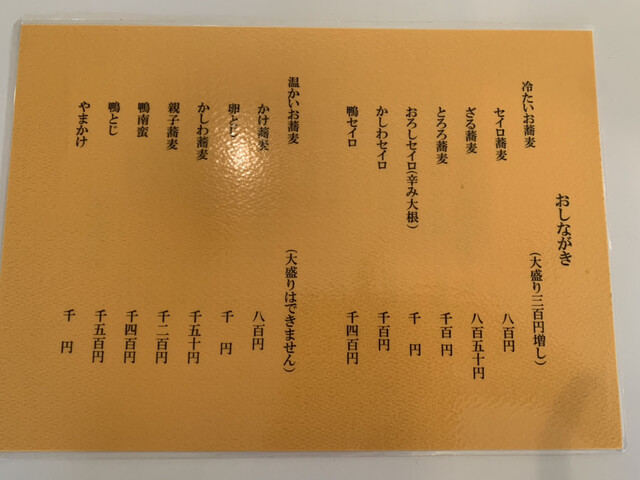 おしながき
冷たいお蕎麦 (大盛り三百円増し)
セイロ蕎麦 八百円
ざる蕎麦 八百五十円
とろろ蕎麦 千百円
おろしセイロ(辛み大根) 千 円
かしわセイロ 千百円
鴨セイロ 千四百円
温かいお蕎麦 (大盛りはできません)
かけ蕎麦 八百円
卵とじ 千 円
かしわ蕎麦 千五十円
親子蕎麦 千二百円
鴨南蛮 千四百円
鴨とじ 千五百円
やまかけ 千 円